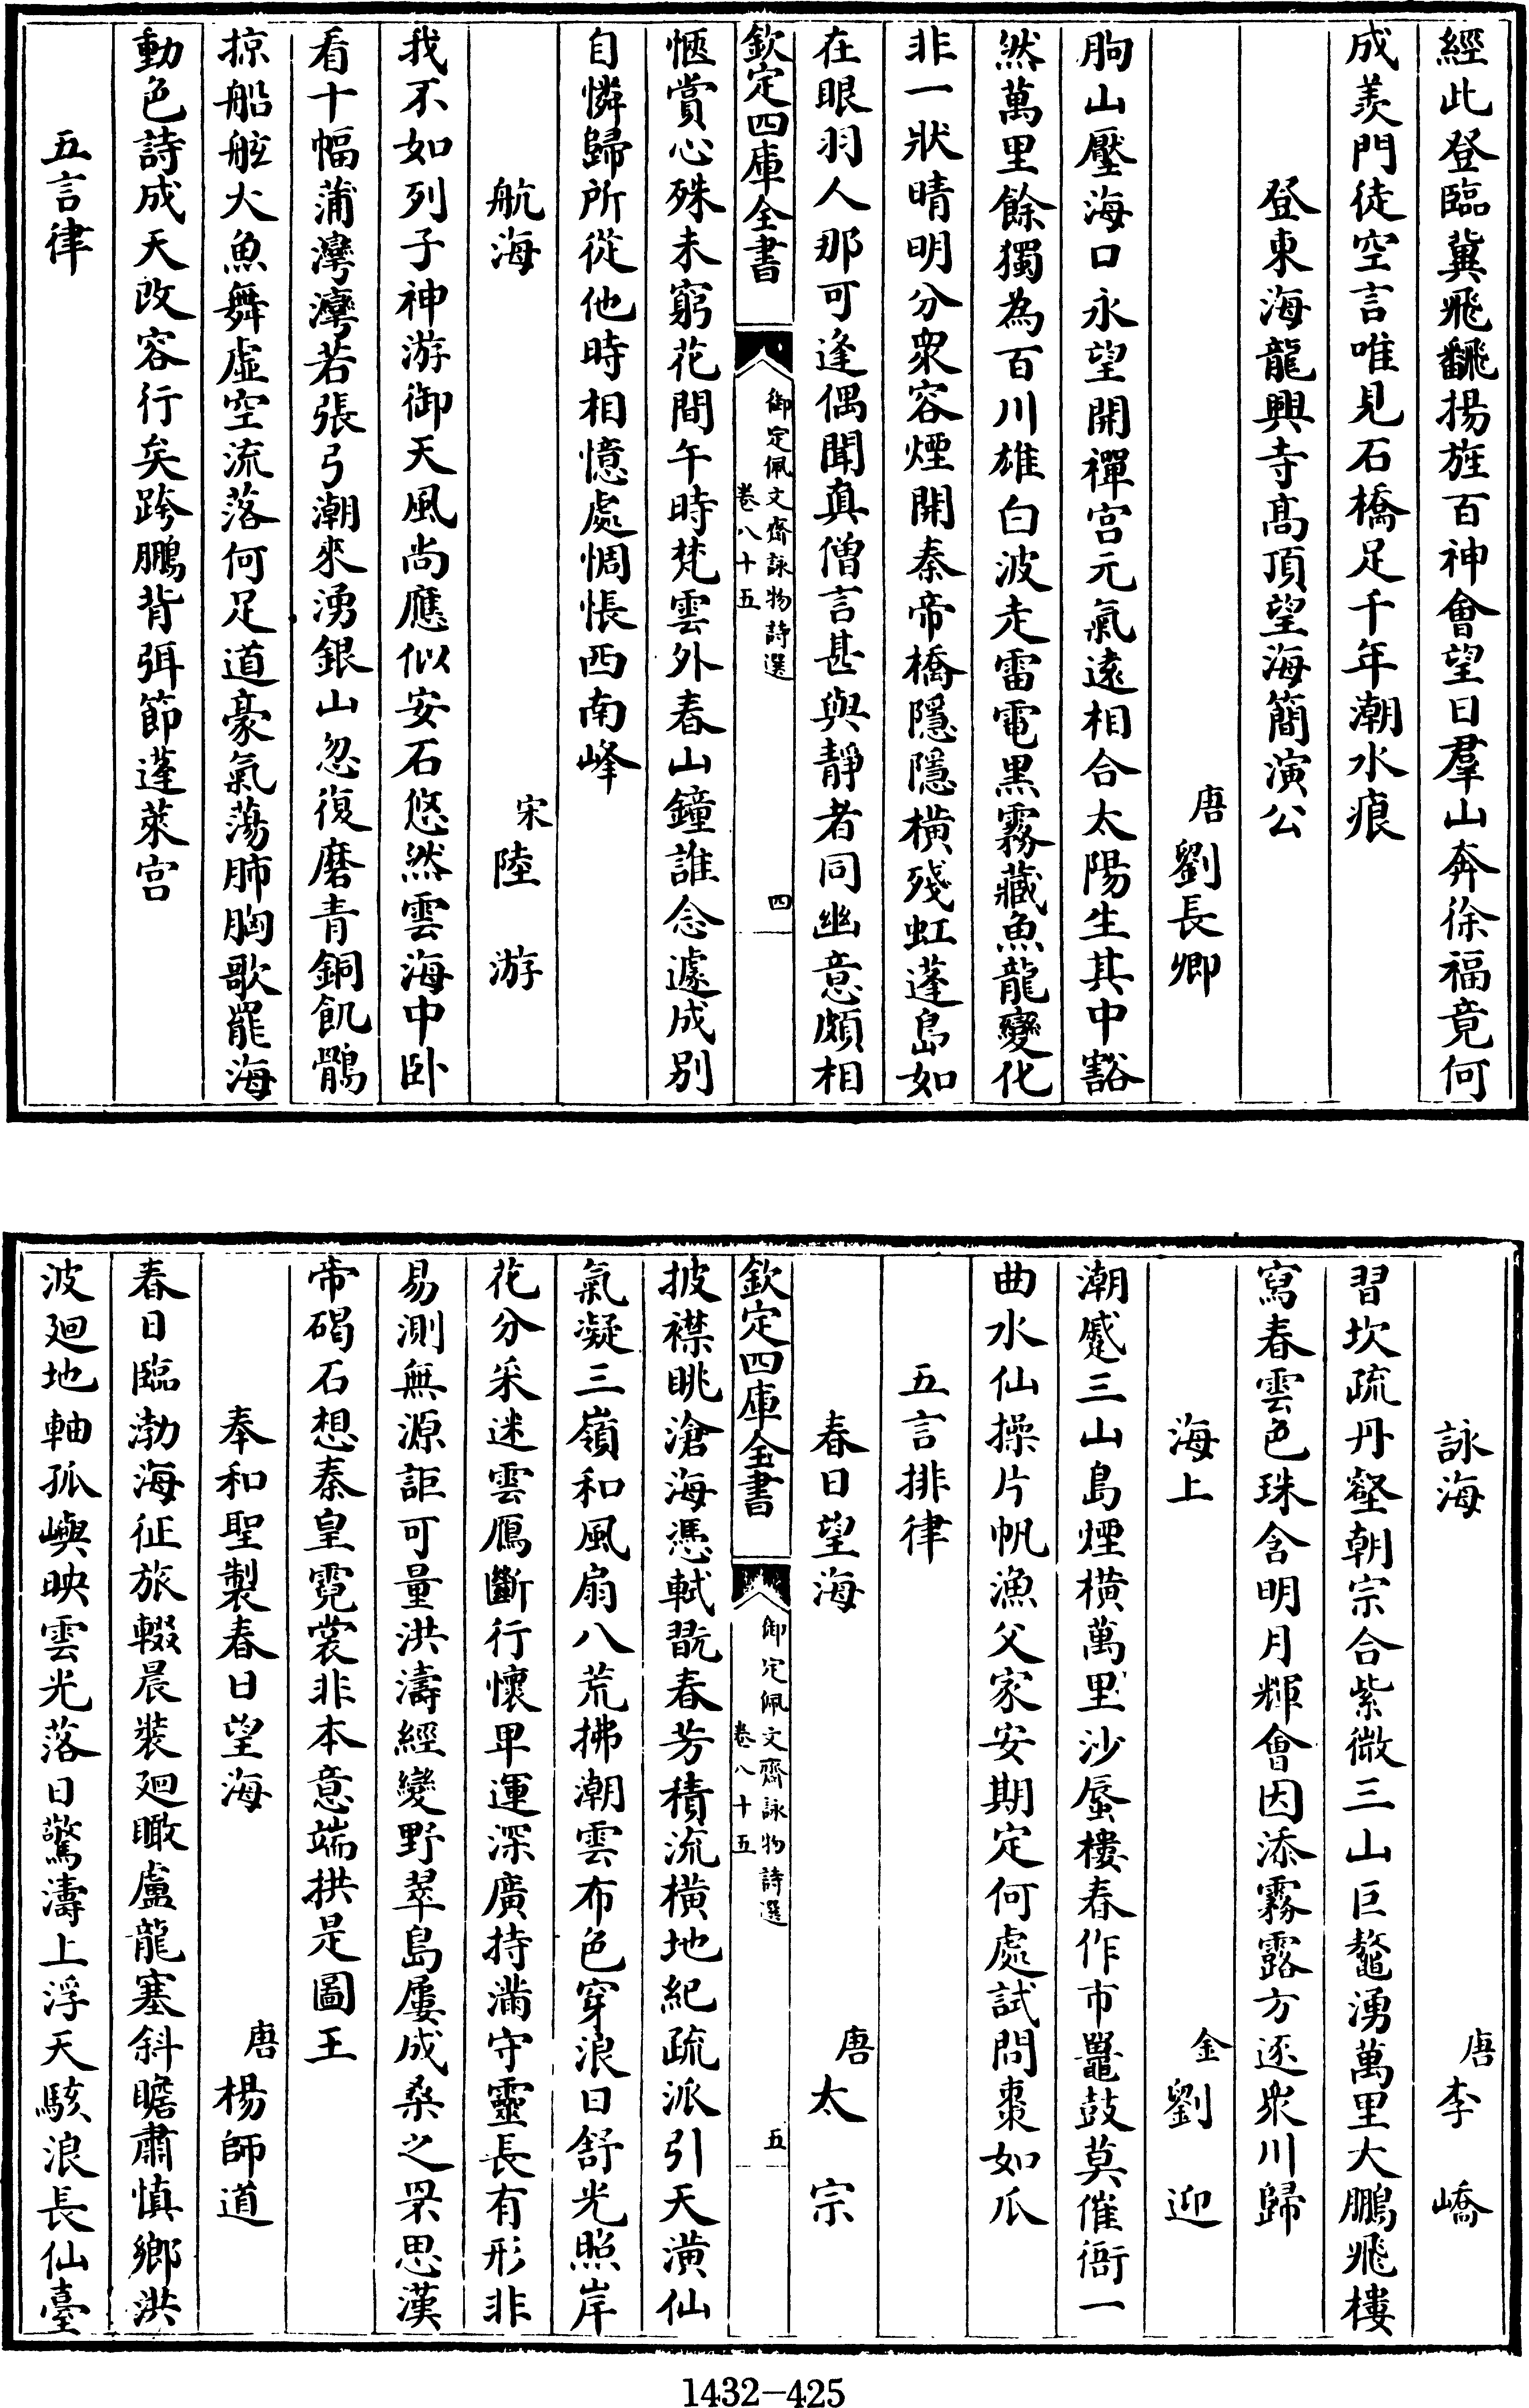 經此登臨冀飛飜揚旌百神會望日羣山奔徐福竟何
成羨門徒空言唯見石橋足千年潮水痕
登東海龍興寺髙頂望海簡演公
唐劉長卿
朐山壓海口永望開禪宫元氣逺相合太陽生其中豁
然萬里餘獨為百川雄白波走雷電黒霧藏魚龍變化
非一狀晴明分衆容煙開秦帝橋隱隱橫殘虹蓬島如
在眼羽人那可逢偶聞真僧言甚與靜者同幽意頗相
欽定四庫全書
御定佩文齋詠物詩選
卷八十五
四
愜賞心殊未窮花間午時梵雲外春山鐘誰念遽成别
自憐歸所從他時相憶處惆悵西南峰
航海
宋陸游
我不如列子神游御天風尚應似安石悠然雲海中卧
看十幅蒲灣灣若張弓潮來湧銀山忽復磨青銅飢鶻
掠船舷大魚舞虚空流落何足道豪氣蕩肺胸歌罷海
動色詩成天改容行矣跨鵬背弭節蓬萊宫
五言律
詠海
唐李嶠
習坎疏丹壑朝宗合紫微三山巨鼇湧萬里大鵬飛樓
寫春雲色珠含明月輝會因添霧露方逐衆川歸
海上
金劉迎
潮蹙三山島煙橫萬里沙蜃樓春作市鼉鼓莫催衙一
曲水仙操片帆漁父家安期定何處試問棗如瓜
五言排律
春日望海
唐太宗
披襟眺滄海憑軾翫春芳積流橫地紀疏派引天潢仙
欽定四庫全書
御定佩文齋詠物詩選
卷八十五
五
氣凝三嶺和風扇八荒拂潮雲布色穿浪日舒光照岸
花分采迷雲鴈斷行懷卑運深廣持滿守靈長有形非
易測無源詎可量洪濤經變野翠島屢成桑之罘思漢
帝碣石想秦皇霓裳非本意端拱是圖王
奉和聖製春日望海
唐楊師道
春日臨渤海征旅輟晨裝廻瞰盧龍塞斜瞻肅慎鄉洪
波廻地軸孤嶼映雲光落日驚濤上浮天駭浪長仙臺
1432-425